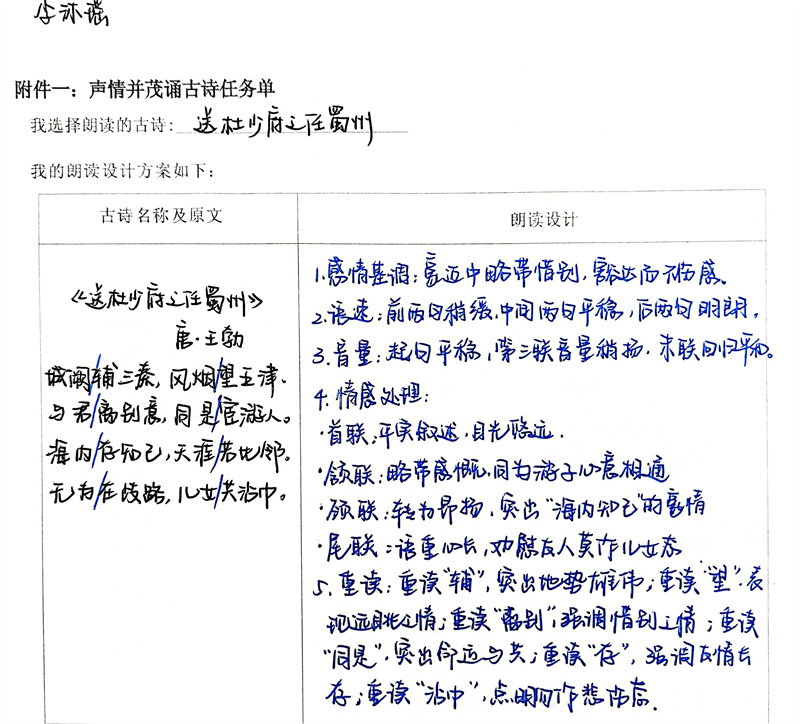 李沐瑶
附件一：声情并茂诵古诗任务单
我选择朗读的古诗：送杜少府之任蜀州
我的朗读设计方案如下：
古诗名称及原文
朗读设计
《送杜少府之任蜀州》
唐·王勃
城阙/辅三秦，风烟/望五津．
与君/离别意，同是/宦游人。
海内/存知己，天涯/若比邻。
无为/在歧路，儿女/共沾巾。
1.感情基调：豪迈中略带惜别，豁达而不伤感。
2.语速：前两句稍缓，中间两句平稳，后两句明朗，
3.音量：起句平稳，第三联音量稍扬，末联回归平和。
4.情感处理：
·首联：平实叙述，目光悠远．
·颔联：略带感慨，同为游子心意相通
·颈联：转为昂扬，突出"海内知己"的豪情
·尾联：语重心长，劝慰友人莫作儿女态
5.重读：重读"辅"，突出地势雄伟；重读"望"，表
现远眺之情；重读"离别"，强调惜别之情；重读
"同是"，突出命运与共；重读"存"，强调友情长
存；重读"沾巾"，点明勿作悲伤态．